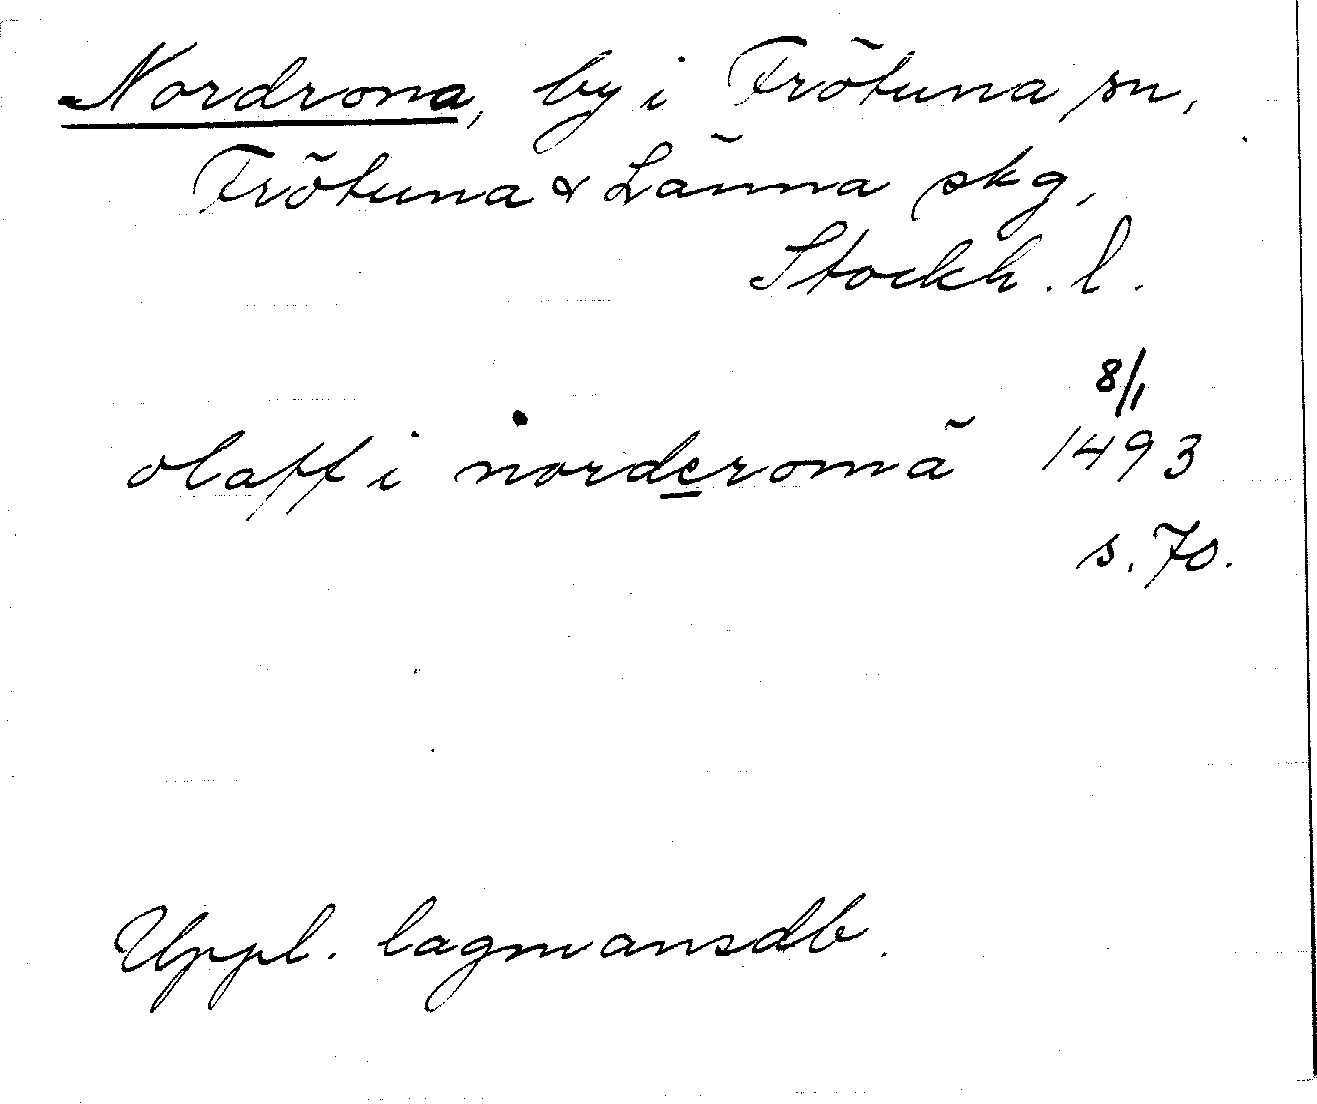 Nordrona, by i Frötuna sn,
Frötuna & Länna skg,
Stockh. l.
8/1
olaff i norderomā 1493
s. 70.
Uppl. lagmansdb.